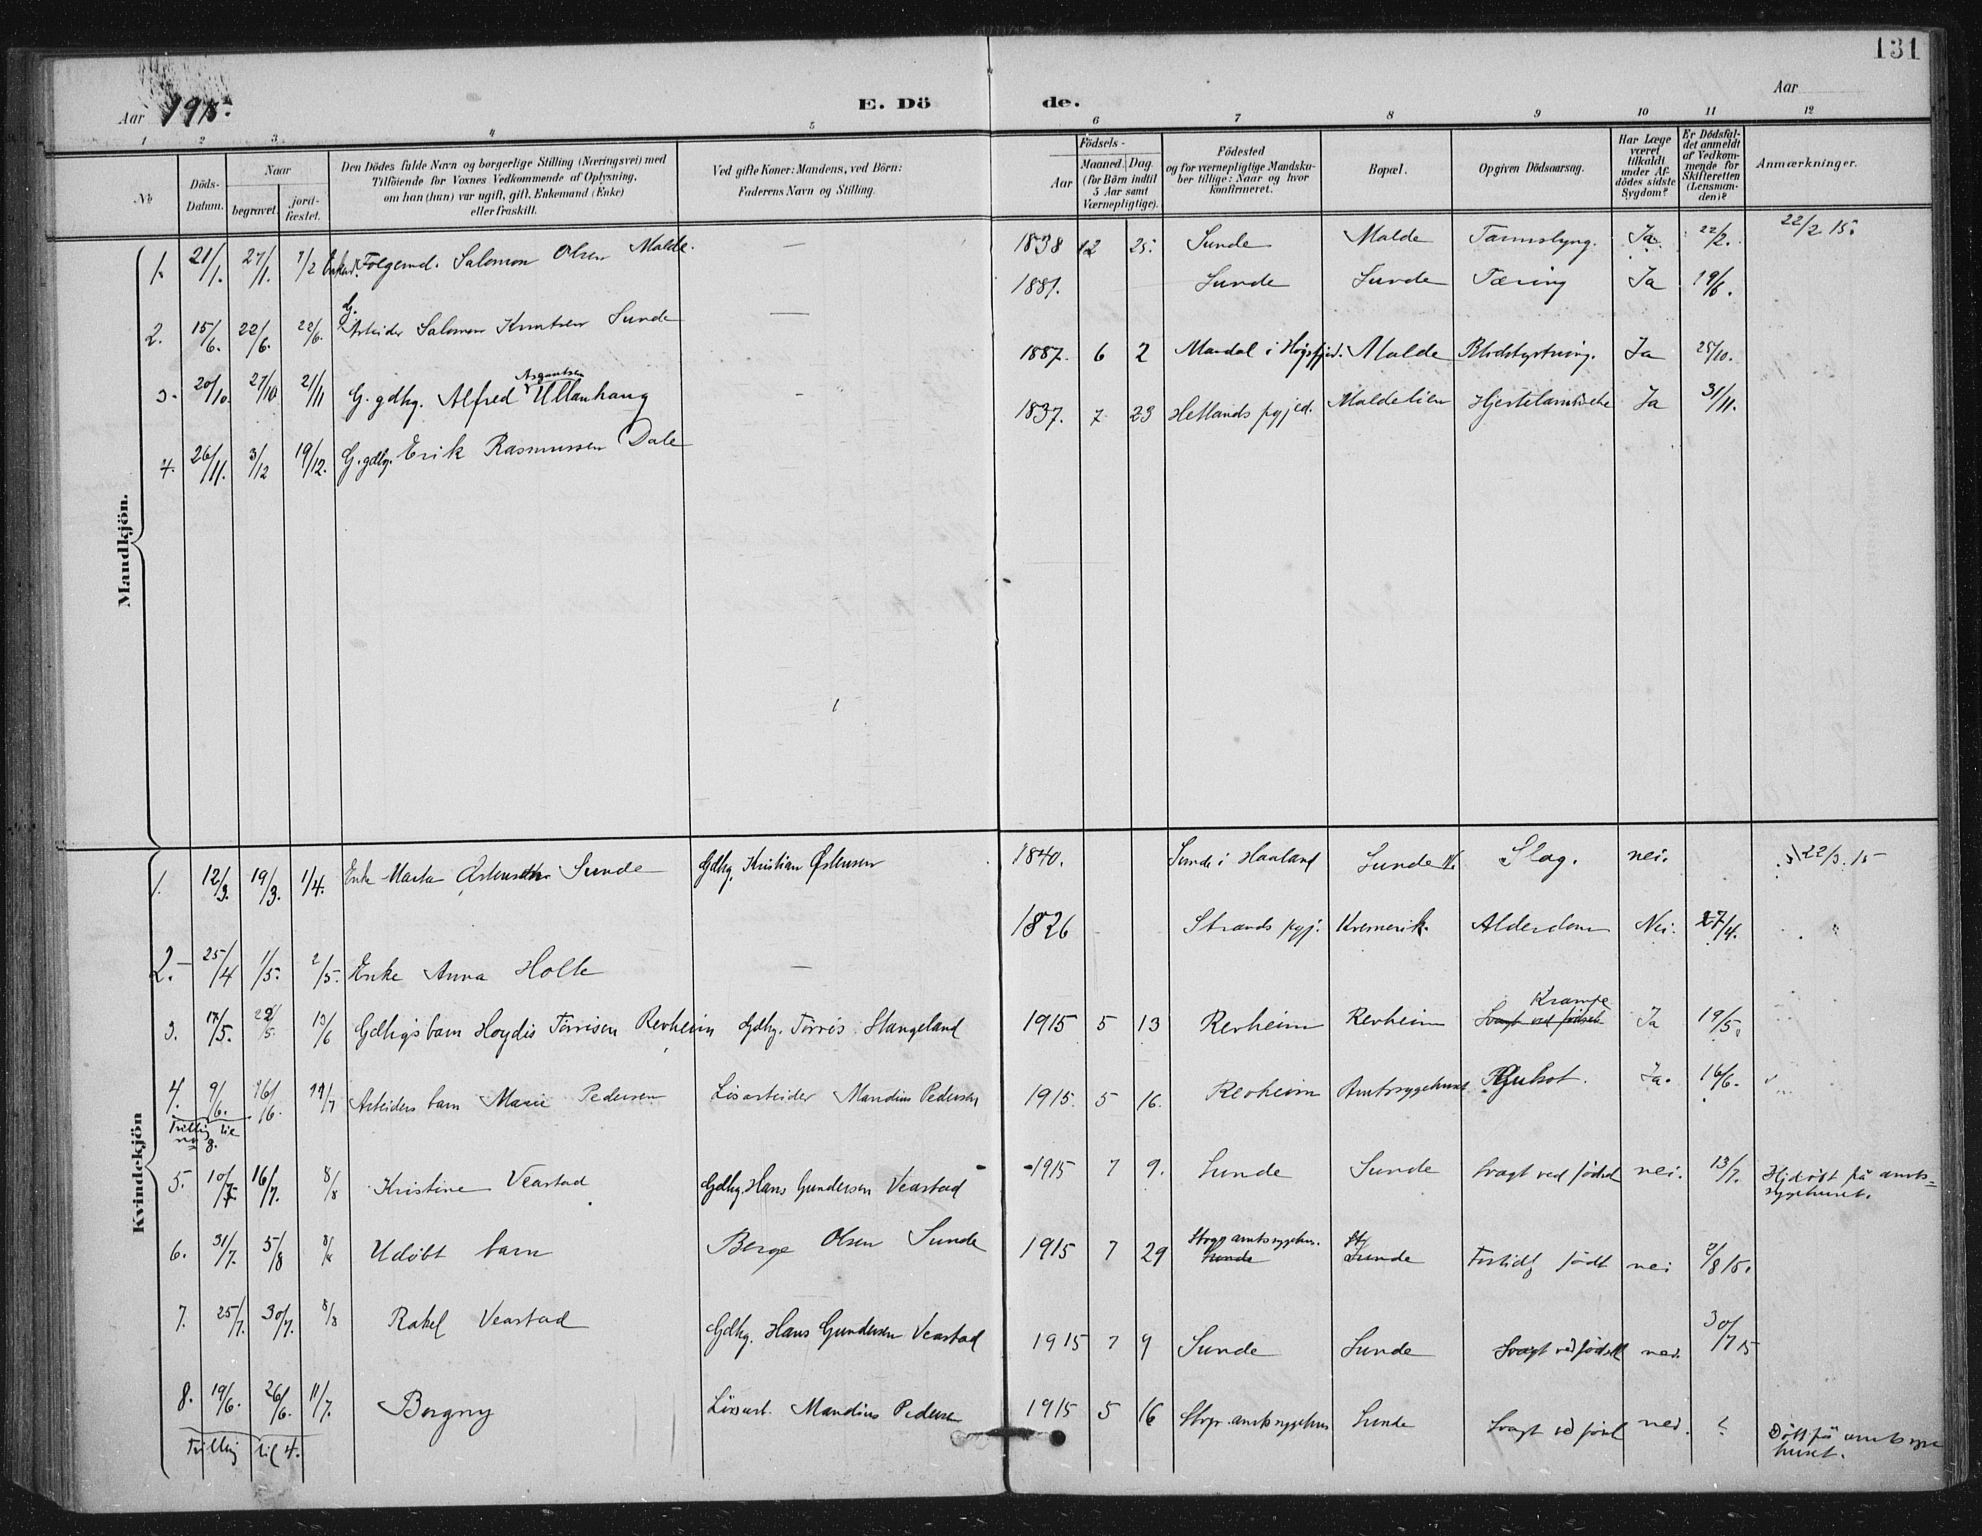 131
Aar 1915.
E. Dö de.
Aar
1 2 3. 4 5 6 7 8 9 10 11 12
No
Döds-Datum.
Naar
begravet.
jord-fæstet.
Den Dödes fulde Navn og borgerlige Stilling (Næringsvei) med
Tilföiende for Voxnes Vedkommende af Oplysning,
om han (hun) var ugift, gift, Enkemand (Enke)
eller fraskilt.
Ved gifte Koner: Mandens, ved Börn:
Faderens Navn og Stilling.
Födsels-
Aar
Maaned. Dag.
(for Börn indtil
5 Aar samt
Værnepligtige).
Födested
og for værnepligtige Mandska-
ber tillige: Naar og hvor
konfirmeret.
Bopæl.
Opgiven Dödsaarsag.
Har Læge
været
tilkaldt
under Af-
dödes sidste
Sygdom?
Er Dödsfal-
det anmeldt
af Vedkom-
mende for
Skifteretten
(Lensman-
den)?
Anmærkninger.
Mandkjön.
1. 21/1. 27/1. 7/2 Enkem. Folgemd. Salomon Olsen Malde. — 1838 12 25. Sunde Malde Tarmslyng. Ja. 22/2. 22/2 15.
2. 15/6. 22/6. 22/6. G. Arbeider Salomon Knutsen Sunde — 1881. Sunde Sunde Tæring Ja 19/6.
3. 20/10. 27/10 21/11 G. gdbg. Alfred Asgautsen Ullanhaug - 1887. 6 2 Mandal i Høgsfjord. Malde Blodstyrtning. Ja 25/10.
4. 26/11. 3/12 19/12. G. gdbg. Erik Rasmussen Dale 1837. 7 23 Hetlands pgjed. Maldelien Hjertelammelse Ja 31/11.
Kvindekjön
1. 12/3. 19/3. 1/4. Enke Marta Østensen Sunde Gdbg. Kristian Østensen 1840. Sunde i Haaland Sunde Slag. nei. 22/3. 15
2. 25/4 1/5. 2/5. Enke Anna Holle — 1826 Strands pgj. Kvernevik. Alderdom Nei. 27/4. "
3. 17/5. 22/5. 13/6 Gdbgs barn Høydis Tørrisen Revheim Gdbg. Tørris Stangeland 1915 5 13 Revheim Revheim Krampe Svagt ved fødsel Ja 19/5.
4. 9/6. 16/6. 11/7 Arbeiders barn Marie Pedersen Løsarbeider Mandius Pedersen 1915. 5 16. Revheim Amtssygehuset Ja. 16/6.
Trilling til no 8.
5. 10/7. 16/7. 8/8 Kristine Veastad Gdbg. Hans Gundersen Veastad 1915 7 9. Sunde Sunde Svagt ved fødsel nei. 13/7. Hjdøbt på amts=
sygehuset.
6. 31/7. 5/8 8/8 Udøbt barn Berge Olsen Sunde 1915 7 29 Stvgr amtssygehus. Sunde Sunde Fortidlig født nei 2/8 15.
7. 25/7. 30/7. 8/8 Rakel Veastad Gdbg. Hans Gundersen Veastad 1915 7 9 Sunde Sunde Svagt ved fødsel nei. 30/7 15
8. 19/6. 26/6. 11/7. Borgny Løsarb. Mandius Pedersen 1915 5 16 Stvgr. amtssygehus Sunde Svagt ved fødsel nei.
Trilling til 4. Døbt på amtssyge
huset.